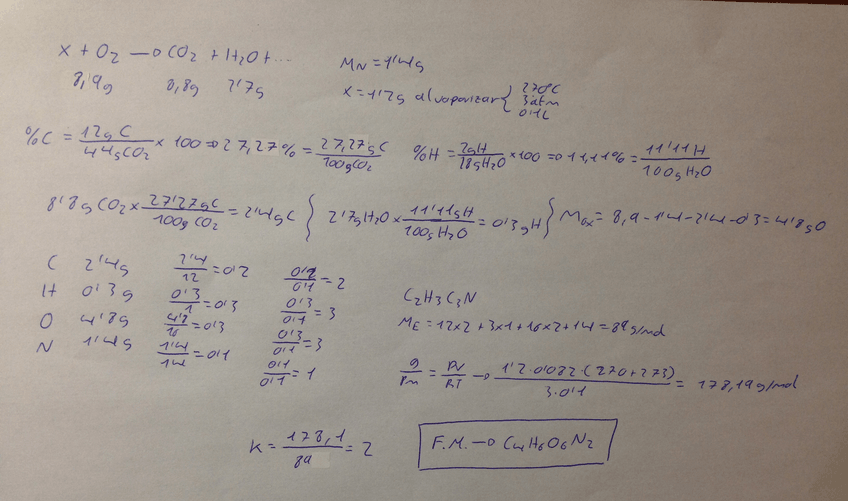 X + O2 —→ CO2 + H2O + ...
8,9g 8,8g 2'7g
MN = 1'4g
X = 1'2g al vaporizar { 270ºC
3 atm
0'1L
%C = 12g C / 44g CO2 × 100 => 27,27% = 27,27g C / 100g CO2
%H = 2g H / 18g H2O × 100 => 11,11% = 11'11 H / 100g H2O
8'8g CO2 × 27'27g C / 100g CO2 = 2'4g C } 2'7g H2O × 11'11g H / 100g H2O = 0'3g H } Mox = 8,9-1'4-2'4-0'3=4'8g O
C 2'4g 2'4/12 = 0'2 0'2/0'1 = 2
H 0'3g 0'3/1 = 0'3 0'3/0'1 = 3
O 4'8g 4'8/16 = 0'3 0'3/0'1 = 3
N 1'4g 1'4/14 = 0'1 0'1/0'1 = 1
C2H3C3N
ME = 12×2 + 3×1 + 16×2 + 14 = 89g/mol
g/Pm = PV/RT → 1'2·0'082·(270+273) / 3·0'1 = 178,19g/mol
K = 178,1 / 89 = 2
F.M. → C4H6O6N2